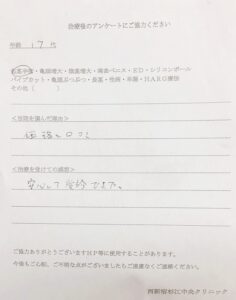 治療後のアンケートにご協力ください
年齢 17 代
包茎手術・亀頭増大・陰茎増大・長茎ペニス・ED・シリコンボール
パイプカット・亀頭ぶつぶつ・早漏・性病・HARG療法
その他（ ）
<当院を選んだ理由>
価格と口コミ
<治療を受けての感想>
安心して受診できた。
ご協力ありがとうございますHP等に使用することがあります。
今後もご心配、ご不明な点がございましたらご遠慮なくご連絡ください。
西新宿杉江中央クリニック